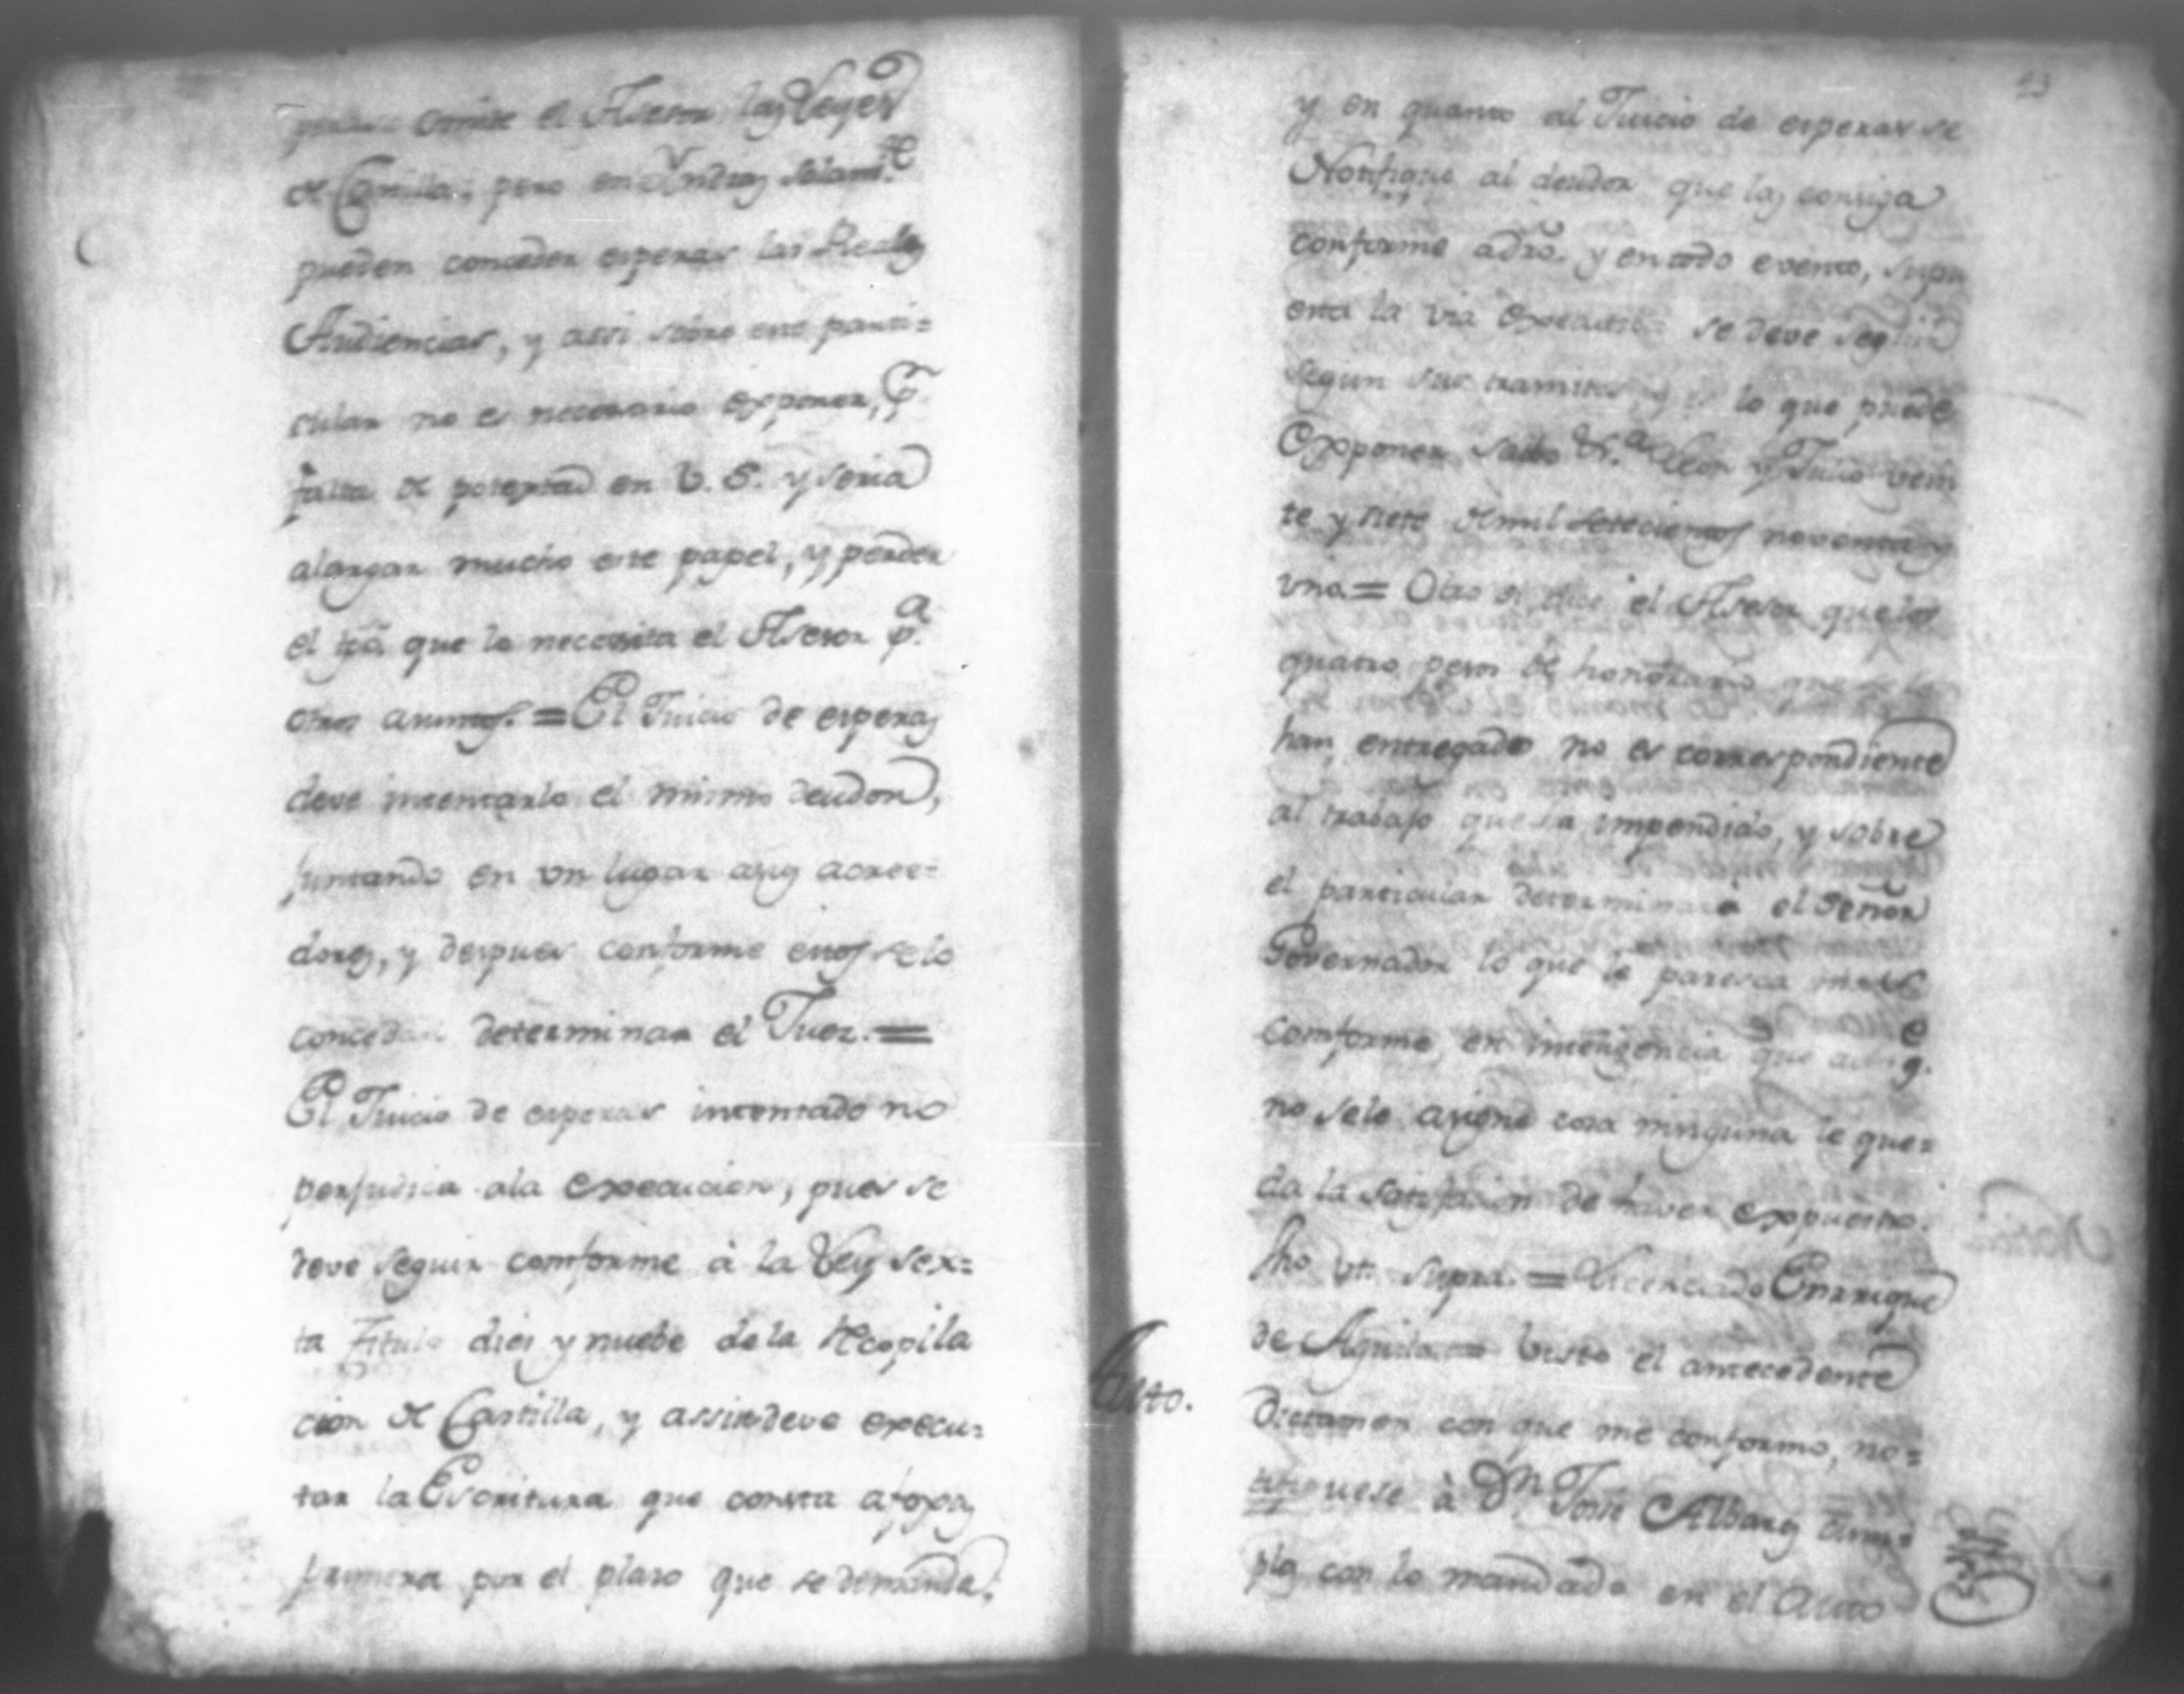 omite el Asesor las Leyes
de Castilla; pero en Yndias solam.te
pueden conceder esperas las Reales
Audiencias, y assi sobre este parti=
cular no es necesario exponer, p.r
falta de potestad en V. S. y seria
alargar mucho este papel, y perder
el tpo que lo necesita el Asesor p.a
otros asuntos. = El Juicio de esperas
deve intentarlo el mismo deudor,
juntando en un lugar asus acree=
dores, y despues conforme ellos se lo
concedan determinar el Juez. =
El Juicio de esperas intentado no
perjudica ala execucion, pues se
deve seguir comforme à la Ley sex=
ta Titulo dies y nuebe de la Recopila
cion de Castilla, y assi se deve execu=
tar la Escritura que consta afoxas
primera por el plaso que se demanda;
13
y en quanto al Juicio de esperas se
Notifique al deudor que las consiga
conforme adro. y en todo evento, supu
esta la via executiba se deve seguir
segun sus tramites, y es lo que puede
Expponer, salto y Julio vein
te y siete de mil setecientos noventa y
uno = Otro si dice el Asesor que los
quatro pesos de honorario que se le
han entregado no es correspondiente
al trabajo que ha impendido, y sobre
el particular determinará el Señor
Governador lo que le paresca mas
comforme, en inteligencia que aunq.e
no selo asigne cosa ninguna le que=
da la satisfacion de haver expuesto.
fho ut supra. = Licenciado Enrrique
de Aguila = Visto el antecedente
Auto.
Dictamen con que me conformo, no=
tifiquese à Dn Jose Albares cum=
pla con lo mandado en el Auto